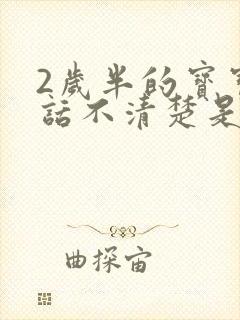 2歲半的寶
話不清楚是
曲探宙